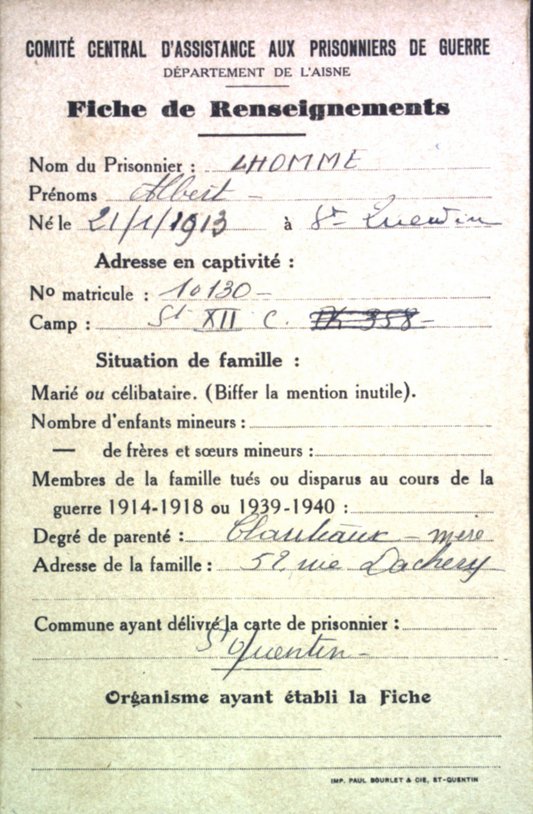 COMITÉ CENTRAL D'ASSISTANCE AUX PRISONNIERS DE GUERRE
DÉPARTEMENT DE L'AISNE
Fiche de Renseignements
Nom du Prisonnier : LHOMME
Prénoms Albert -
Né le 21/1/1913 à St Quentin
Adresse en captivité :
No matricule : 10130 -
Camp : St XII C.
Situation de famille :
Marié ou célibataire. (Biffer la mention inutile).
Nombre d'enfants mineurs :
— de frères et sœurs mineurs :
Membres de la famille tués ou disparus au cours de la
guerre 1914-1918 ou 1939-1940 :
Degré de parenté : - mère
Adresse de la famille : 52 rue Dachery
Commune ayant délivré la carte de prisonnier :
St Quentin -
Organisme ayant établi la Fiche
IMP. PAUL BOURLET & CIE, ST-QUENTIN